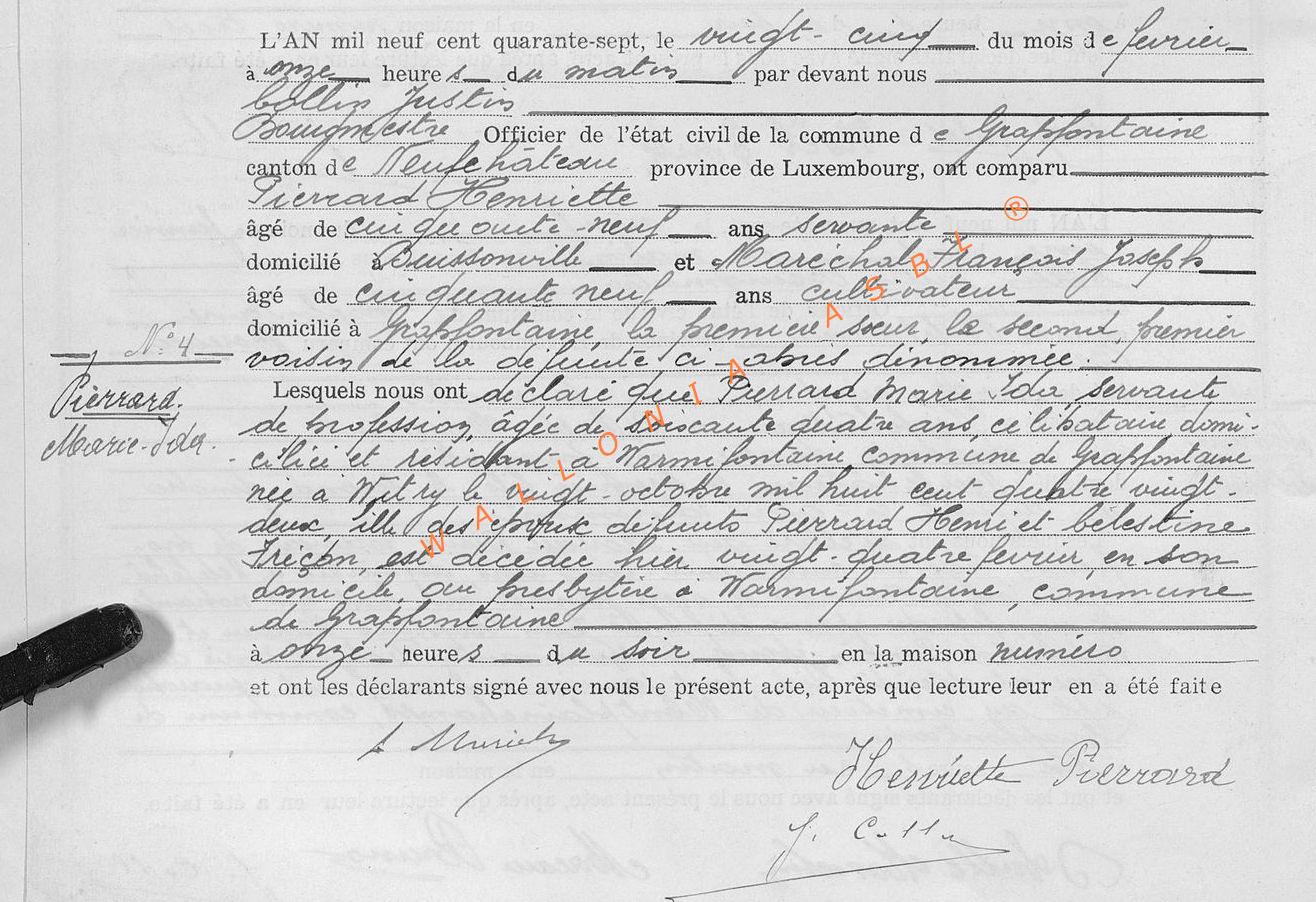 L'AN mil neuf cent quarante-sept, le vingt-cinq du mois de fevrier
à onze heures du matin par devant nous
Collin Justin
Bourgmestre Officier de l'état civil de la commune de Grapfontaine
canton de Neufchâteau province de Luxembourg, ont comparu
Pierrard Henriette
âgé de cinquante-neuf ans servante
domicilié à Buissonville et Maréchal François Joseph
âgé de cinquante neuf ans cultivateur
domicilié à Grapfontaine, la première sœur, le second, premier
voisin de la défunte ci-après dénommée.
N° 4
Pierrard
Marie-Ida.
Lesquels nous ont déclaré que Pierrard Marie Ida, servante
de profession, âgée de soixante quatre ans, célibataire domi-
ciliée et résidant à Warmifontaine commune de Grapfontaine
née a Witry le vingt-octobre mil huit cent quatre vingt-
deux, fille des époux défunts Pierrard Henri et Célestine
Friçon, est décédée hier vingt-quatre fevrier, en son
domicile, au presbytère à Warmifontaine, commune
de Grapfontaine
à onze heures du soir en la maison numéro
et ont les déclarants signé avec nous le présent acte, après que lecture leur en a été faite
Henriette Pierrard
J. Collin
WALLONIA ASBL ®